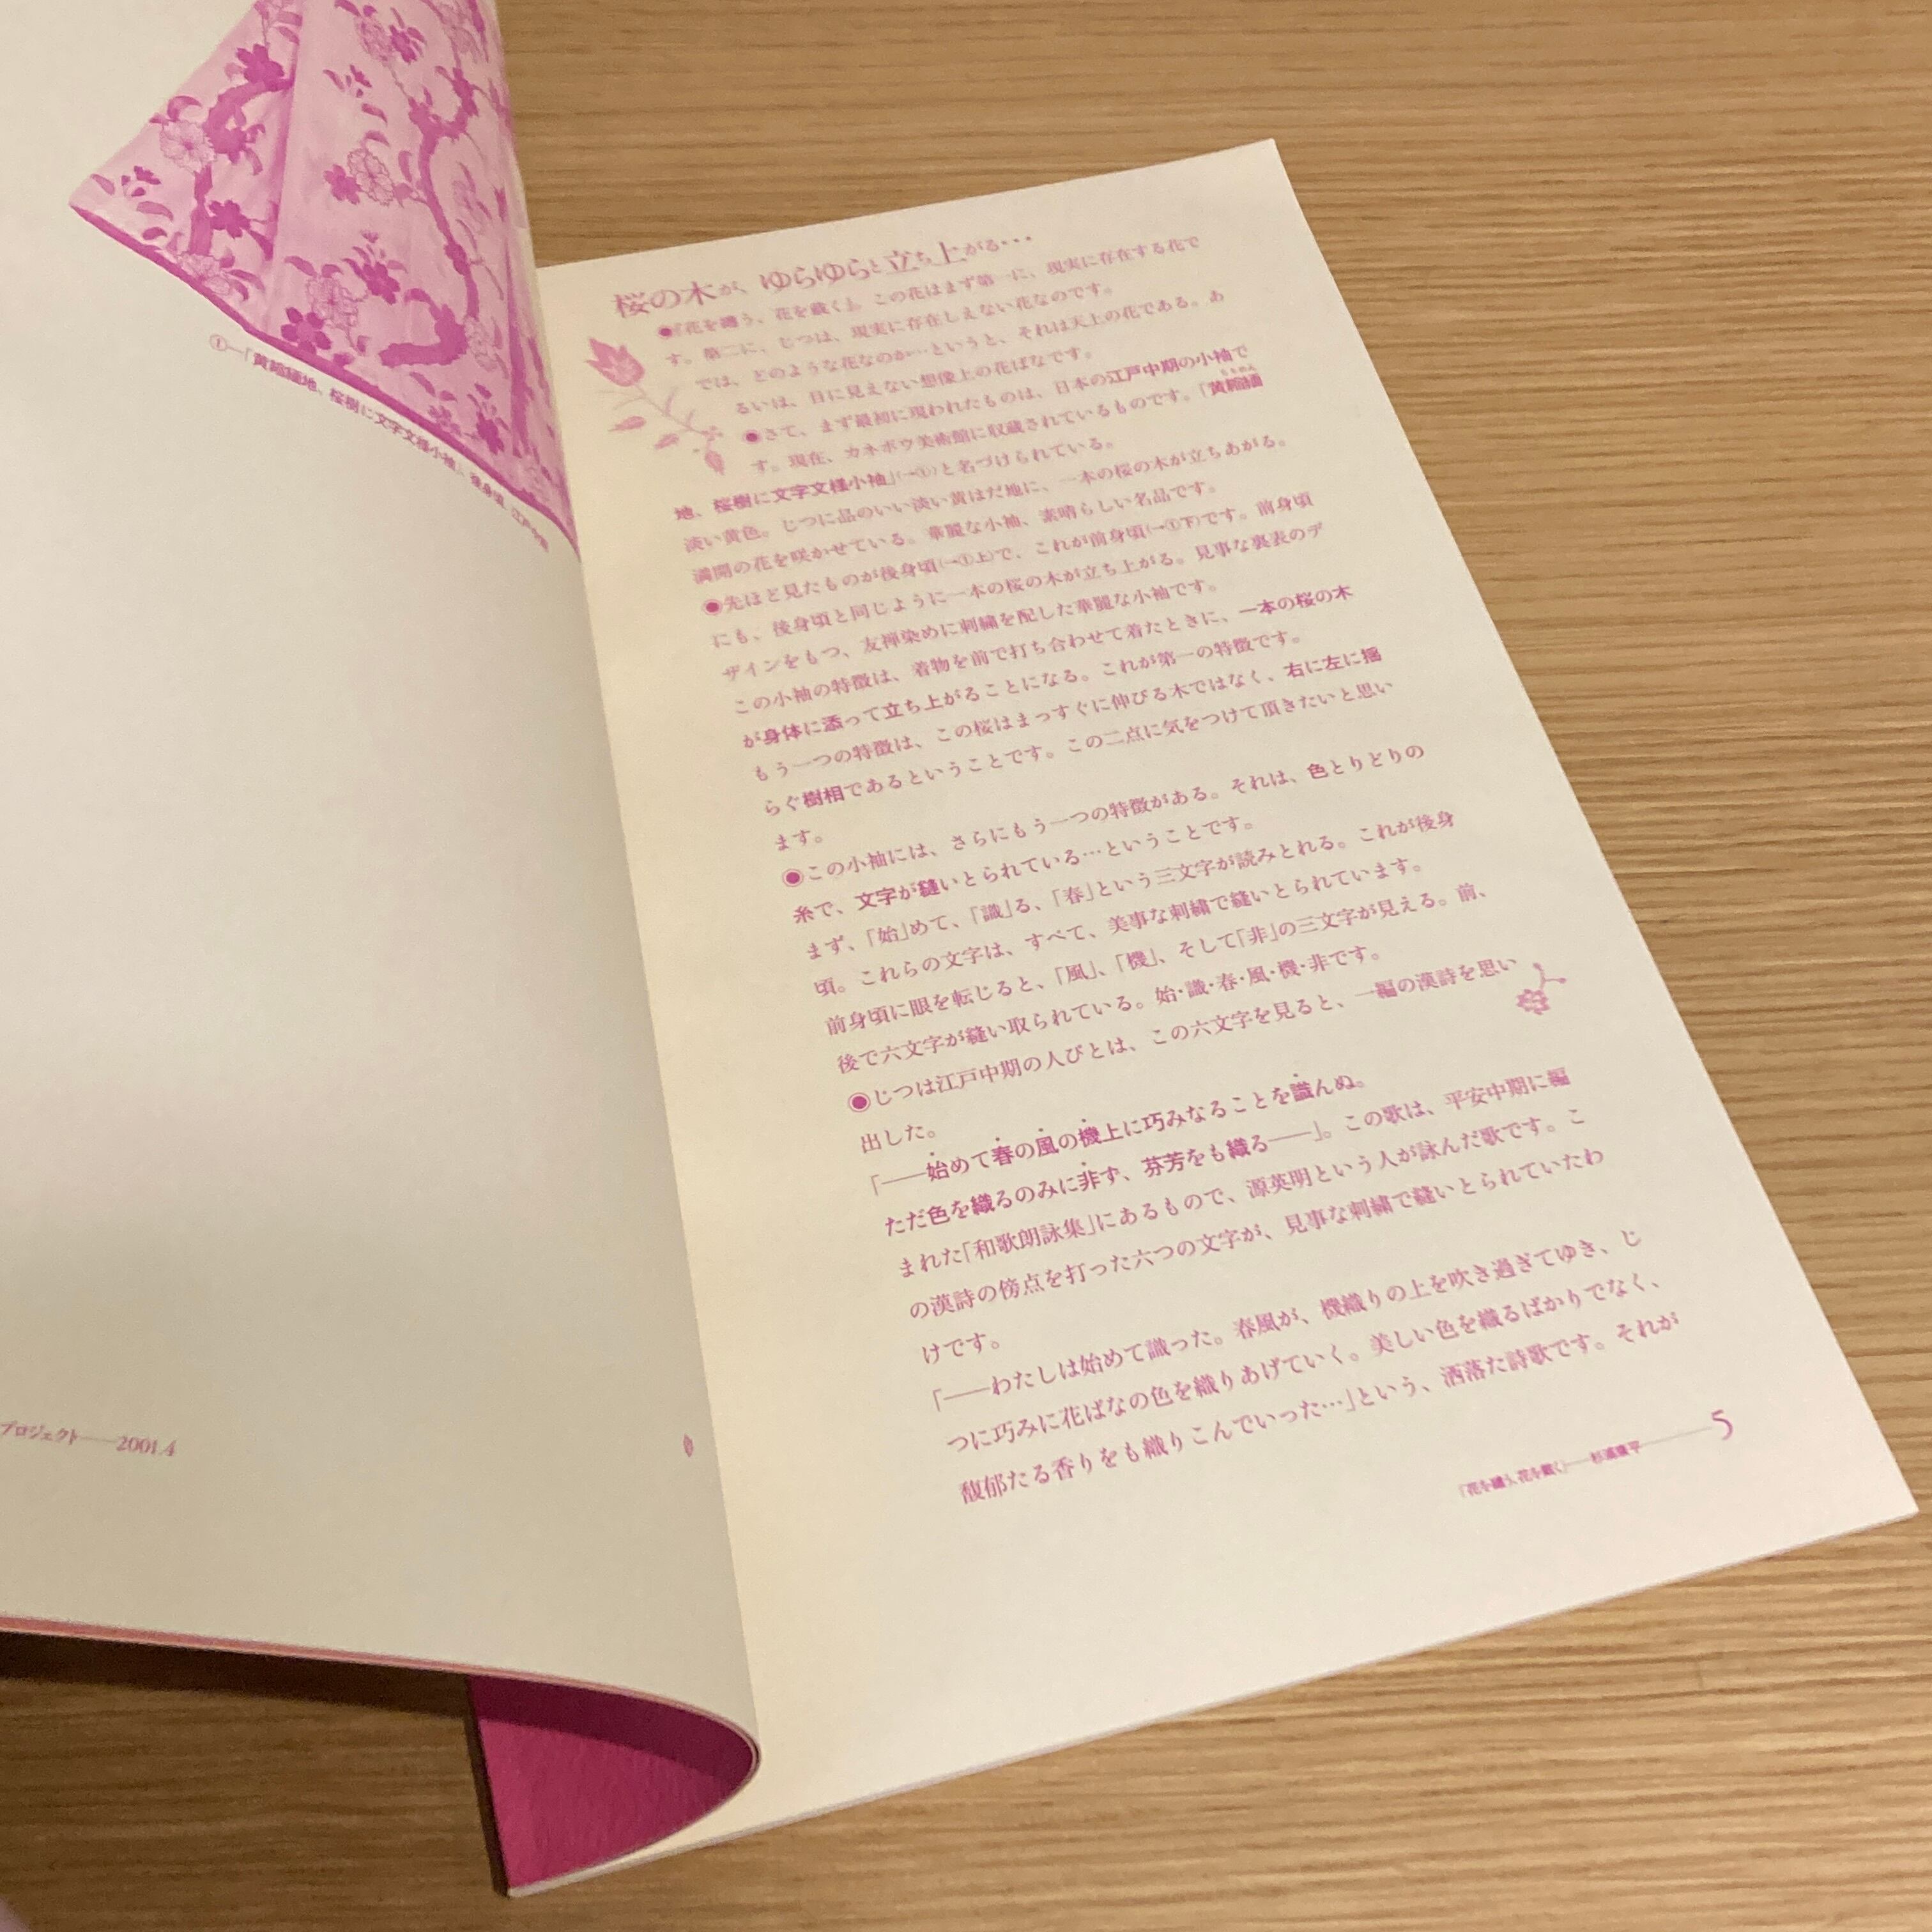 ①—「黄縮緬地、桜樹に文字文様小袖」後身頃 江戸中期
プロジェクト——2001.4
桜の木が、ゆらゆらと立ち上がる…
◉『花を纏う、花を戴く』。この花はまず第一に、現実に存在する花で
す。第二に、じつは、現実に存在しえない花なのです。
では、どのような花なのか…というと、それは天上の花である。あ
るいは、目に見えない想像上の花ばなです。
◉さて、まず最初に現われたものは、日本の江戸中期の小袖で
す。現在、カネボウ美術館に収蔵されているものです。「黄縮緬
地、桜樹に文字文様小袖」(→①)と名づけられている。
淡い黄色。じつに品のいい淡い黄はだ地に、一本の桜の木が立ちあがる。
満開の花を咲かせている。華麗な小袖、素晴らしい名品です。
◉先ほど見たものが後身頃(→①上)で、これが前身頃(→①下)です。前身頃
にも、後身頃と同じように一本の桜の木が立ち上がる。見事な裏表のデ
ザインをもつ、友禅染めに刺繍を配した華麗な小袖です。
この小袖の特徴は、着物を前で打ち合わせて着たときに、一本の桜の木
が身体に添って立ち上がることになる。これが第一の特徴です。
もう一つの特徴は、この桜はまっすぐに伸びる木ではなく、右に左に揺
らぐ樹相であるということです。この二点に気をつけて頂きたいと思い
ます。
◉この小袖には、さらにもう一つの特徴がある。それは、色とりどりの
糸で、文字が縫いとられている…ということです。
まず、「始」めて、「識」る、「春」という三文字が読みとれる。これが後身
頃。これらの文字は、すべて、美事な刺繍で縫いとられています。
前身頃に眼を転じると、「風」、「機」、そして「非」の三文字が見える。前、
後で六文字が縫い取られている。始・識・春・風・機・非です。
◉じつは江戸中期の人びとは、この六文字を見ると、一編の漢詩を思い
出した。
「——始めて春の風の機上に巧みなることを識んぬ。
ただ色を織るのみに非ず、芬芳をも織る——」。この歌は、平安中期に編
まれた「和歌朗詠集」にあるもので、源英明という人が詠んだ歌です。こ
の漢詩の傍点を打った六つの文字が、見事な刺繍で縫いとられていたわ
けです。
「——わたしは始めて識った。春風が、機織りの上を吹き過ぎてゆき、じ
つに巧みに花ばなの色を織りあげていく。美しい色を織るばかりでなく、
馥郁たる香りをも織りこんでいった…」という、洒落た詩歌です。それが
『花を纏う、花を戴く』——杉浦康平——5